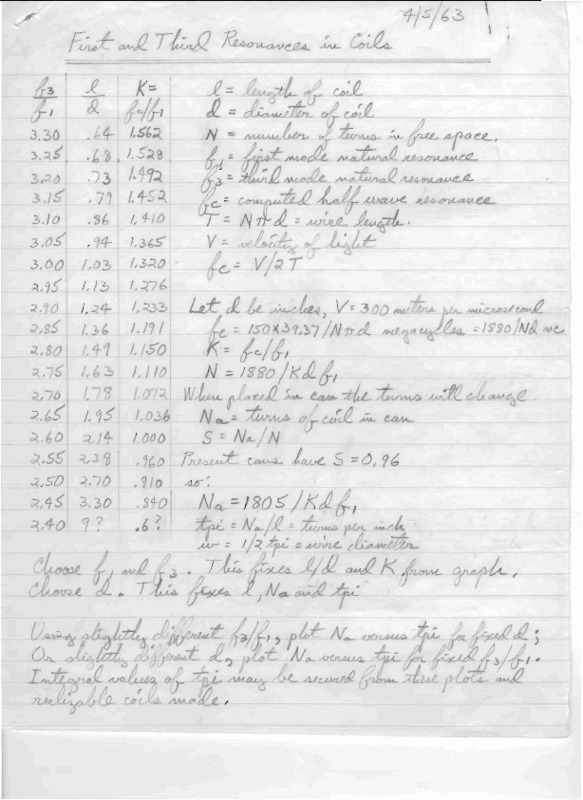 4/5/63
First and Third Resonances in Coils
f3/f1 l/d K= fc/f1
l = length of coil
d = diameter of coil
3.30 .64 1.562 N = number of turns in free space.
3.25 .68 1.528 f1 = first mode natural resonance
3.20 .73 1.492 f3 = third mode natural resonance
3.15 .79 1.452 fc = computed half wave resonance
3.10 .86 1.410 T = Nπd = wire length.
3.05 .94 1.365 V = velocity of light
3.00 1.03 1.320 fc = V/2T
2.95 1.13 1.276
2.90 1.24 1.233 Let d be inches, V = 300 meters per microsecond
2.85 1.36 1.191 fc = 150×39.37/Nπd megacycles = 1880/Nd mc
2.80 1.49 1.150 K = fc/f1
2.75 1.63 1.110 N = 1880/Kdf1
2.70 1.78 1.072 When placed in can the turns will change
2.65 1.95 1.036 Na = turns of coil in can
2.60 2.14 1.000 S = Na/N
2.55 2.38 .960 Present cans have S = 0.96
2.50 2.70 .910 so:
2.45 3.30 .840 Na = 1805/Kdf1
2.40 9? .6? tpi = Na/l = turns per inch
w = 1/2tpi = wire diameter
Choose f1 and f3. This fixes l/d and K from graph.
Choose d. This fixes l, Na and tpi
Using slightly different f3/f1, plot Na versus tpi for fixed d;
Or slightly different d, plot Na versus tpi for fixed f3/f1.
Integral values of tpi may be secured from these plots and
realizable coils made.